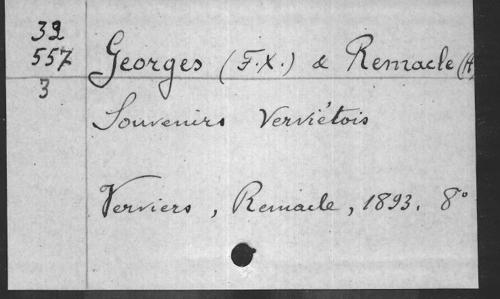 32
557 Georges (F.X.) & Remacle (H)
3
Souvenirs Verviétois
Verviers, Remacle, 1893. 8°